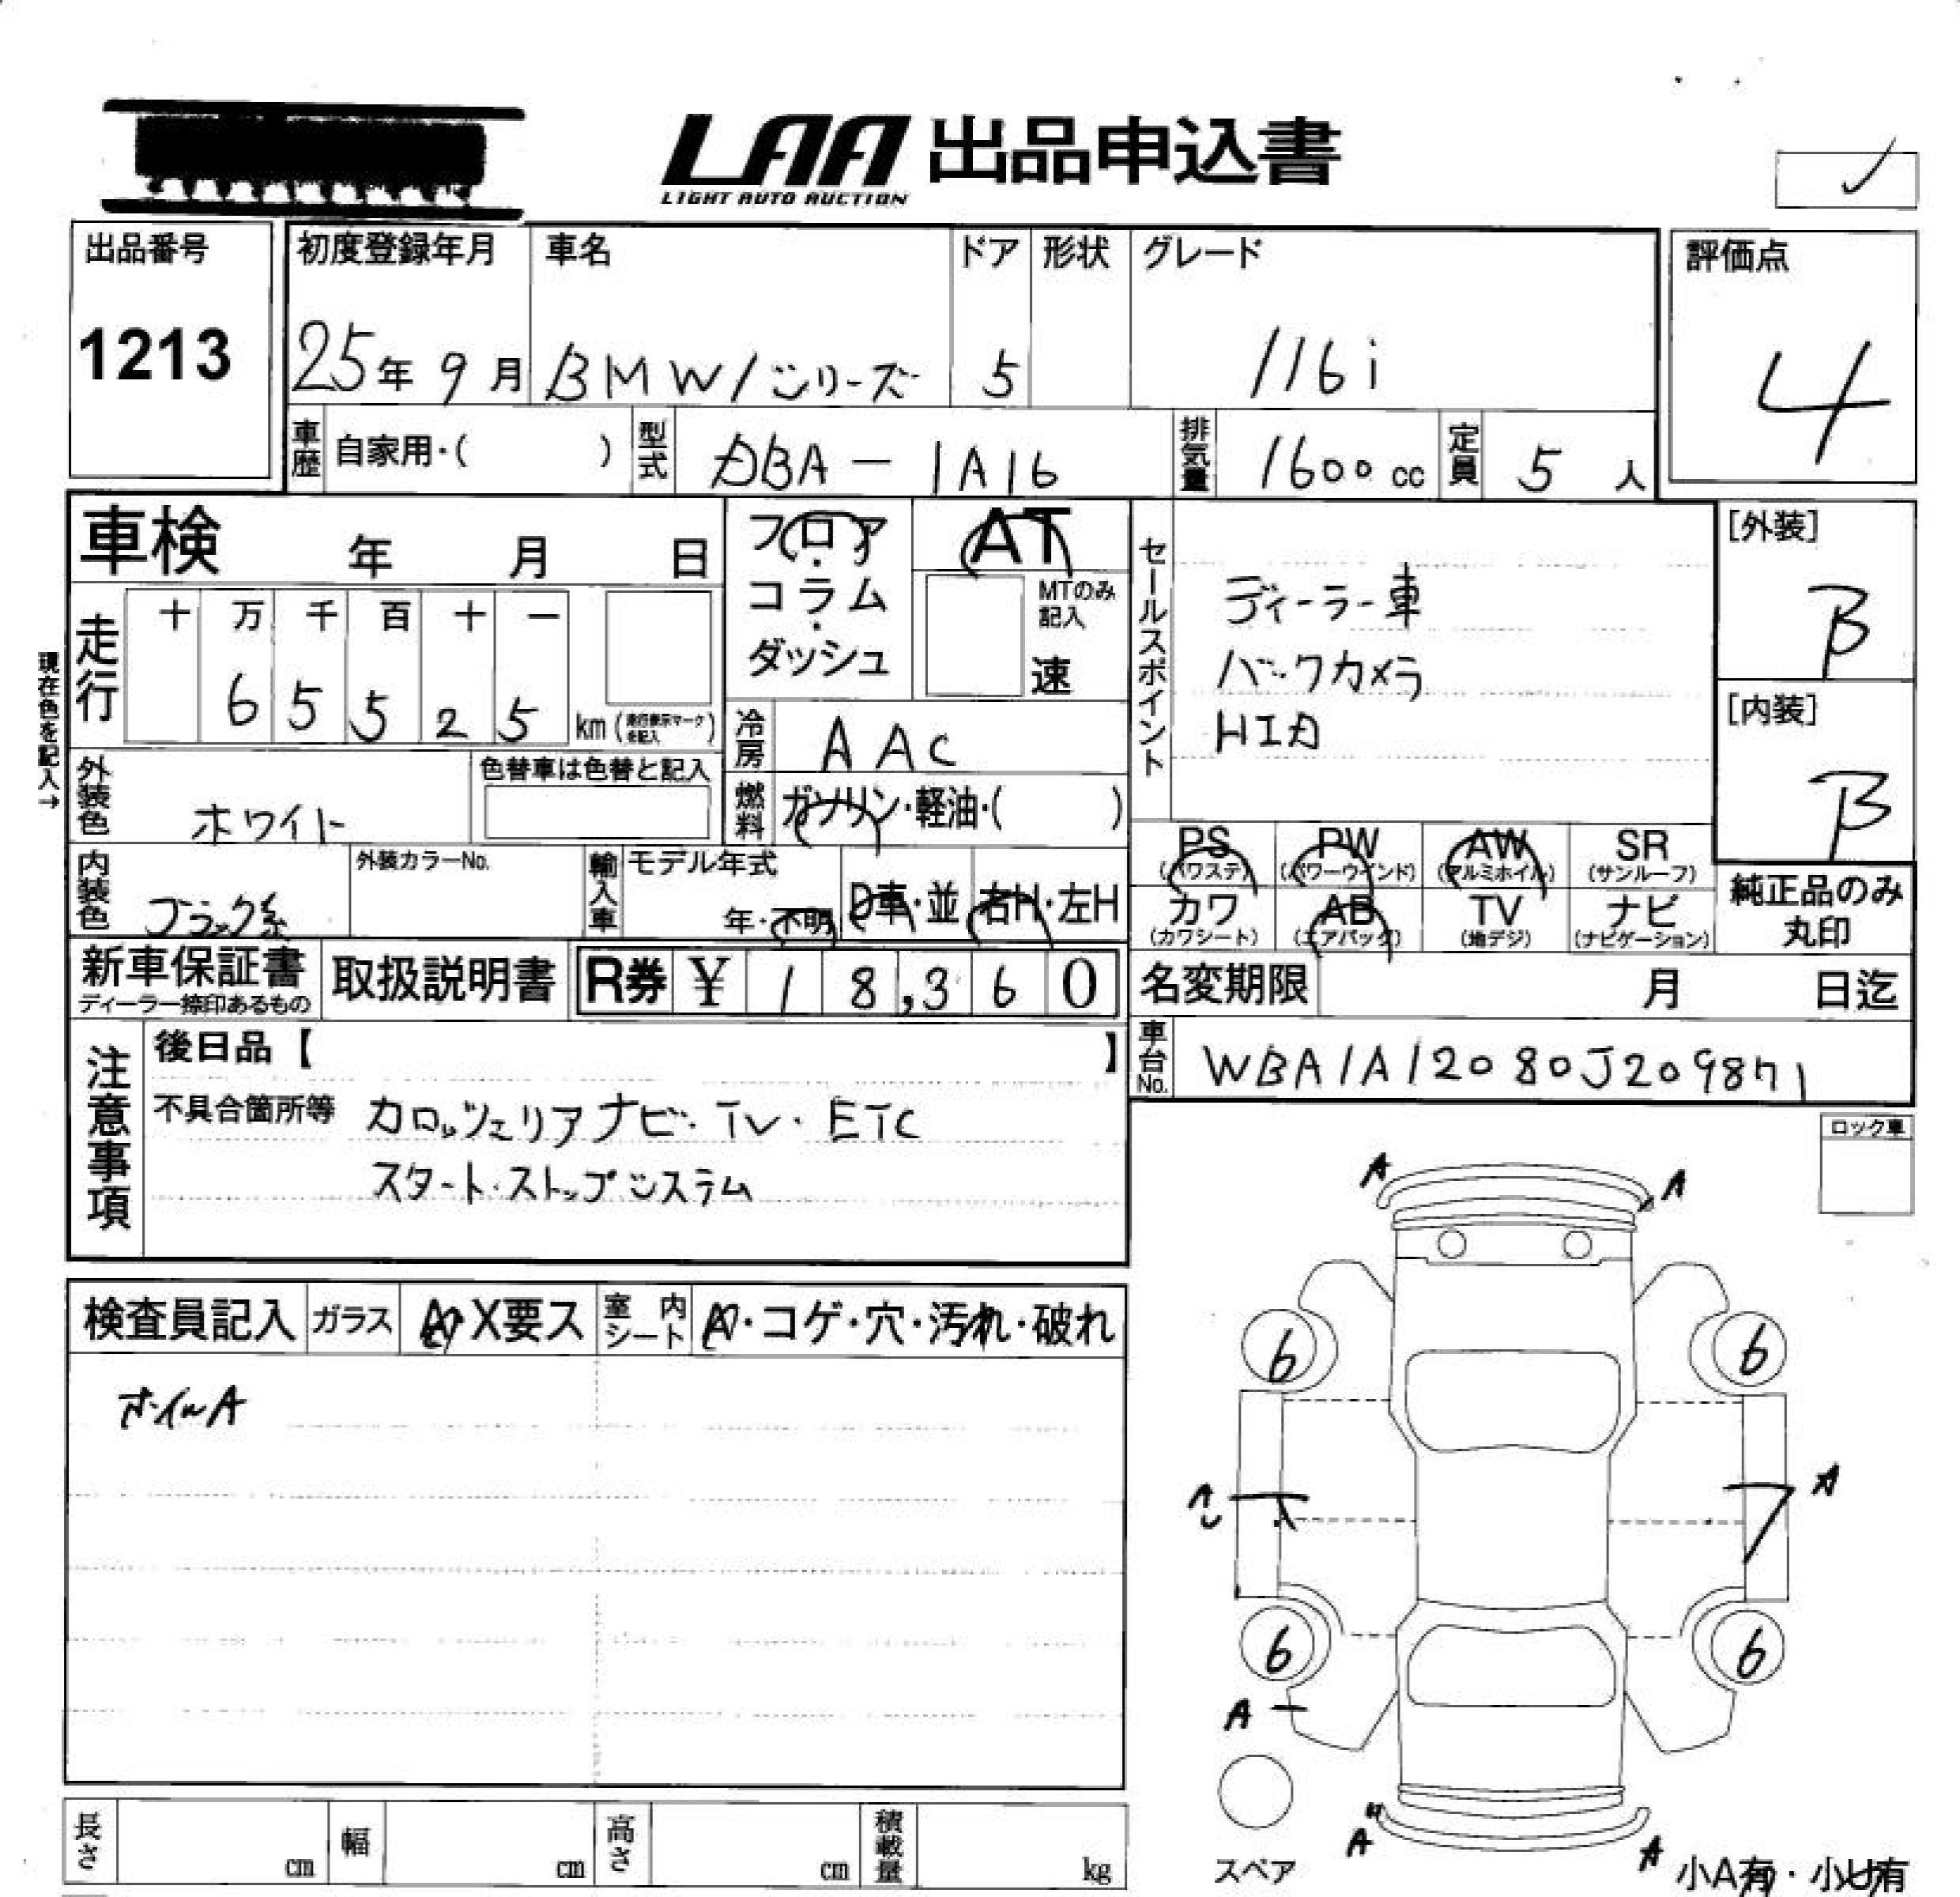 LAA 出品申込書
LIGHT AUTO AUCTION
出品番号
1213
初度登録年月
25年 9月
車名
BMW1シリーズ
ドア
5
形状
グレード
116i
評価点
4
車歴 自家用・( )
型式 DBA-1A16
排気量 1600 cc
定員 5 人
車検 年 月 日
フロア・コラム・ダッシュ
AT
MTのみ記入
速
セールスポイント
ディーラー車
バックカメラ
HID
[外装]
B
[内装]
B
現在色を記入→
走行
十 万 千 百 十 一
6 5 5 2 5 km (走行表示マークを記入)
冷房 AAC
燃料 ガソリン・軽油・( )
外装色 ホワイト
色替車は色替と記入
内装色 ブラック系
外装カラーNo.
輸入車
モデル年式
年・不明
D車・並
右H・左H
PS (パワステ)
PW (パワーウインド)
AW (アルミホイル)
SR (サンルーフ)
カワ (カワシート)
AB (エアバッグ)
TV (地デジ)
ナビ (ナビゲーション)
純正品のみ丸印
新車保証書
ディーラー捺印あるもの
取扱説明書
R券 ¥ 18,360
名変期限 月 日迄
車台No. WBA1A12080J209871
注意事項
後日品【 】
不具合箇所等 カロッツェリアナビ・TV・ETC
スタート・ストップシステム
ロック車
検査員記入
ガラス A・X要ス
室内シート A・コゲ・穴・汚れ・破れ
ホイルA
A A
6 6
A
6 6
A
A A
スペア
小A有・小U有
長さ cm
幅 cm
高さ cm
積載量 kg